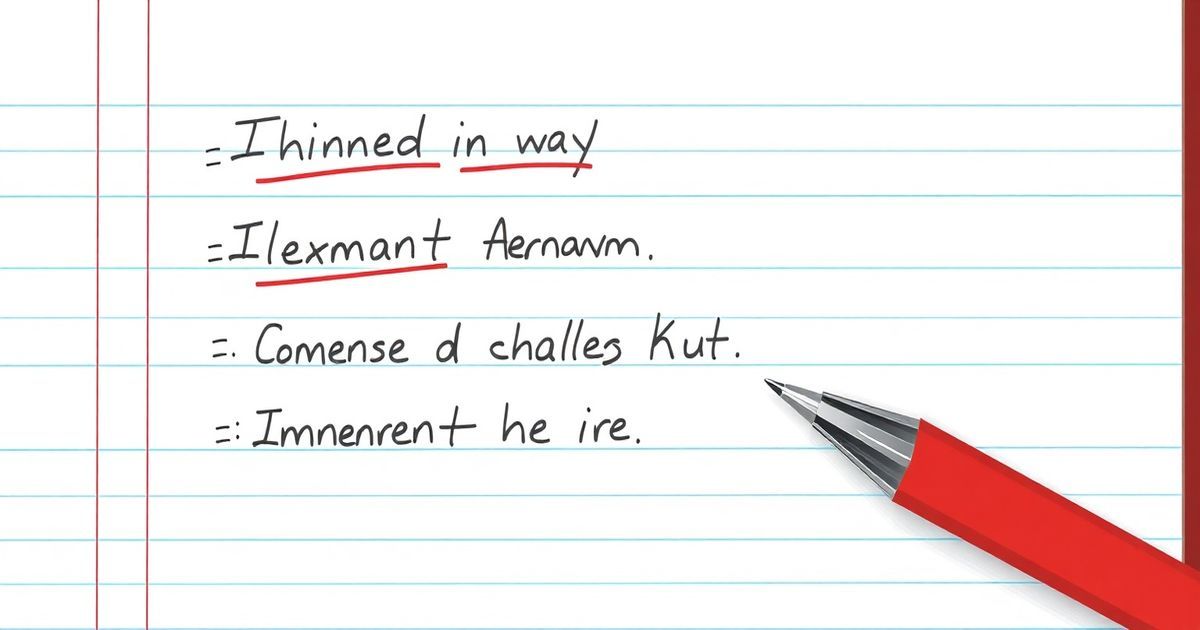 = Ihinned in way
= Ilexmant Aernavm.
=. Comense d challes Kut.
=: Imnenrent he ire.